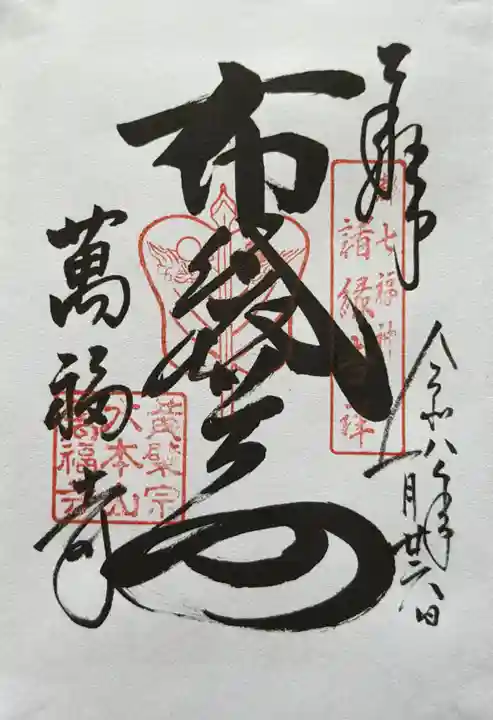 奉拝
都七福神
諸縁吉祥
令和八年
一月廿六日
布袋尊
萬福寺
黄檗宗
大本山
萬福寺